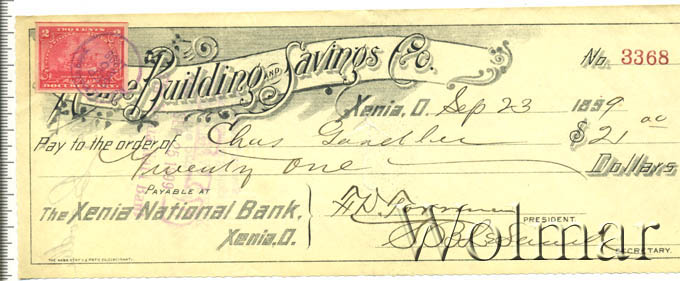 2 TWO CENTS 2
DOCUMENTARY
Home Building AND Savings Co.
No. 3368
Xenia, O. Sep 23 1899
Pay to the order of Chas $21 00
Twenty One Dollars
PAYABLE AT
The Xenia National Bank,
Xenia, O.
PRESIDENT.
SECRETARY.
Wolmar